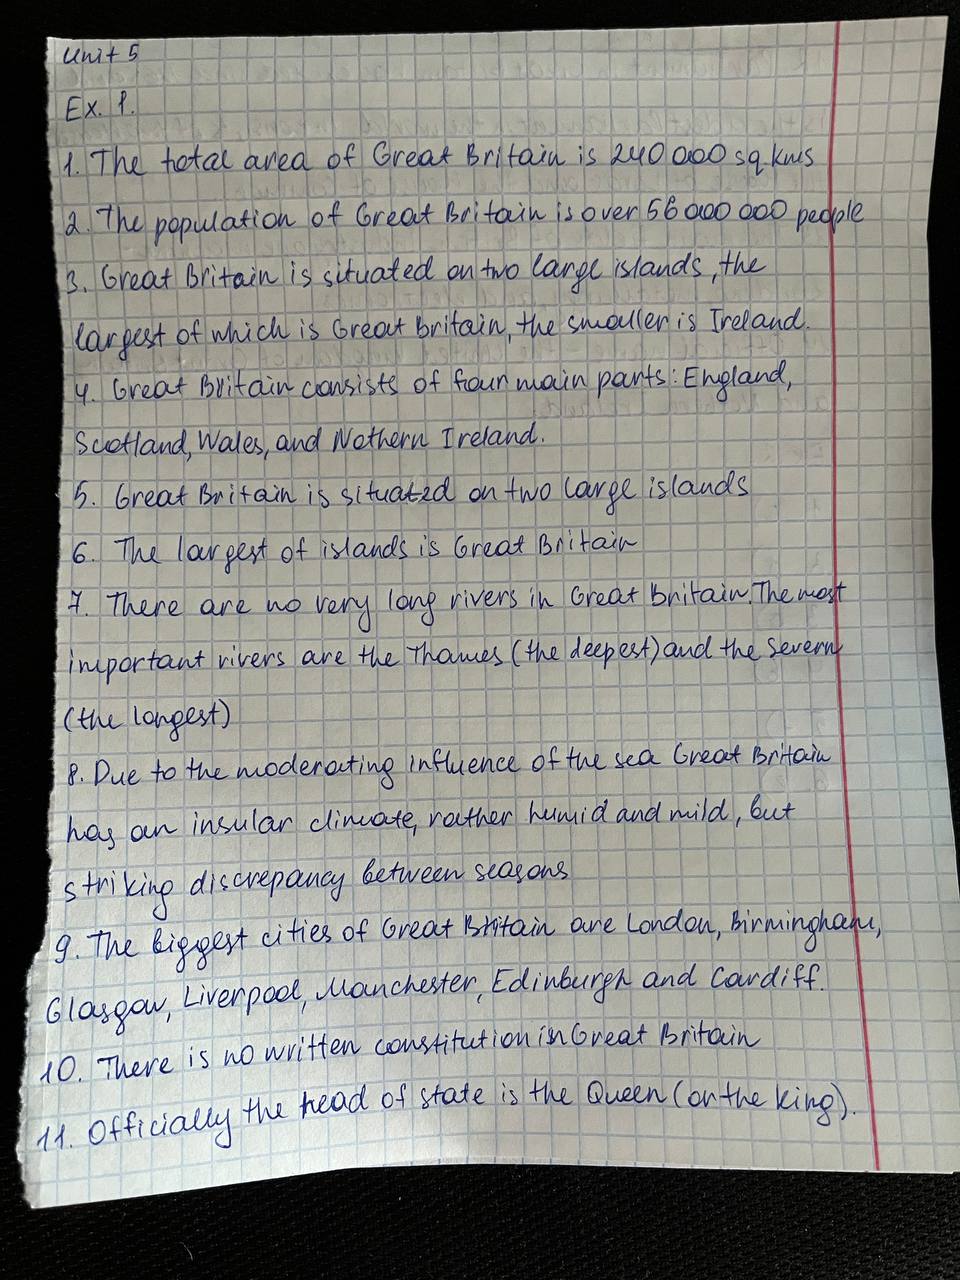 Unit 5
Ex. 1.
1. The total area of Great Britain is 240 000 sq.kms
2. The population of Great Britain is over 56 000 000 people
3. Great Britain is situated on two large islands, the
largest of which is Great Britain, the smaller is Ireland.
4. Great Britain consists of four main parts: England,
Scotland, Wales, and Nothern Ireland.
5. Great Britain is situated on two large islands
6. The largest of islands is Great Britain
7. There are no very long rivers in Great Britain. The most
important rivers are the Thames (the deepest) and the Severn
(the longest)
8. Due to the moderating influence of the sea Great Britain
has an insular climate, rather humid and mild, but
striking discrepancy between seasons
9. The biggest cities of Great Britain are London, Birmingham,
Glasgow, Liverpool, Manchester, Edinburgh and Cardiff.
10. There is no written constitution in Great Britain
11. Officially the head of state is the Queen (or the king).